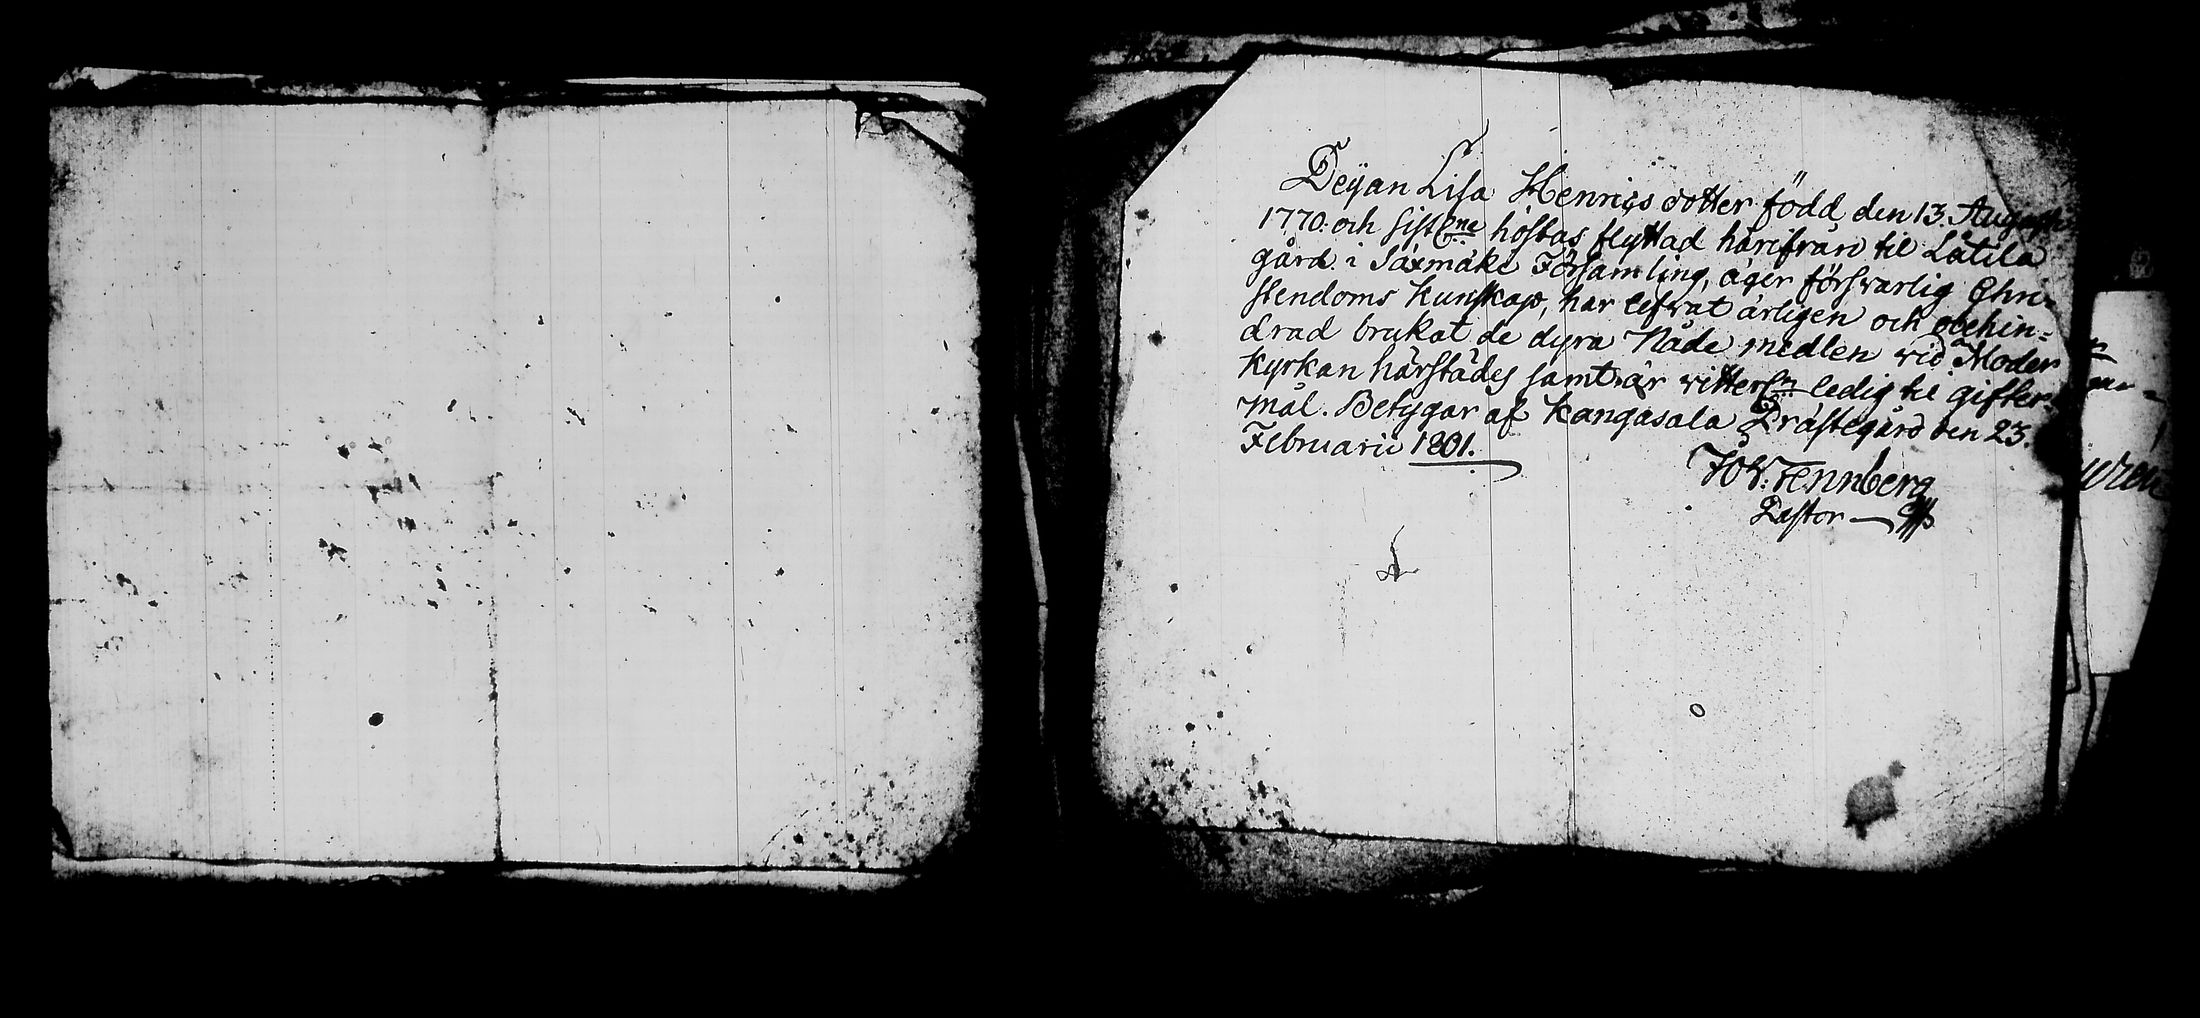 Deyan Lisa Henrics dotter född den 13. Augusti
1770. och sistl:ne höstas flyttad härifrån til Låtila
gård i Säxmäki Församling, äger försvarlig Chri-
stendoms Kunskap, har lefvat ärligen och obehin-
drad brukat de dyra Nåde medlen vid Moder
Kyrkan härstädes samt är vitterl:n ledig til gifter-
mål. Betygar af Kangasala Prästegård den 23.
Februarii 1801.
Tennberg
Pastor